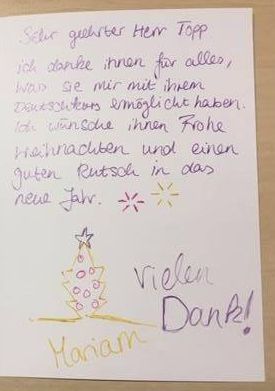 Sehr geehrter Herr Topp
ich danke ihnen für alles,
was sie mir mit ihrem
Deutschkurs ermöglicht haben.
Ich wünsche ihnen Frohe
weihnachten und einen
guten Rutsch in das
neue Jahr.
Vielen
Dank!
Mariam